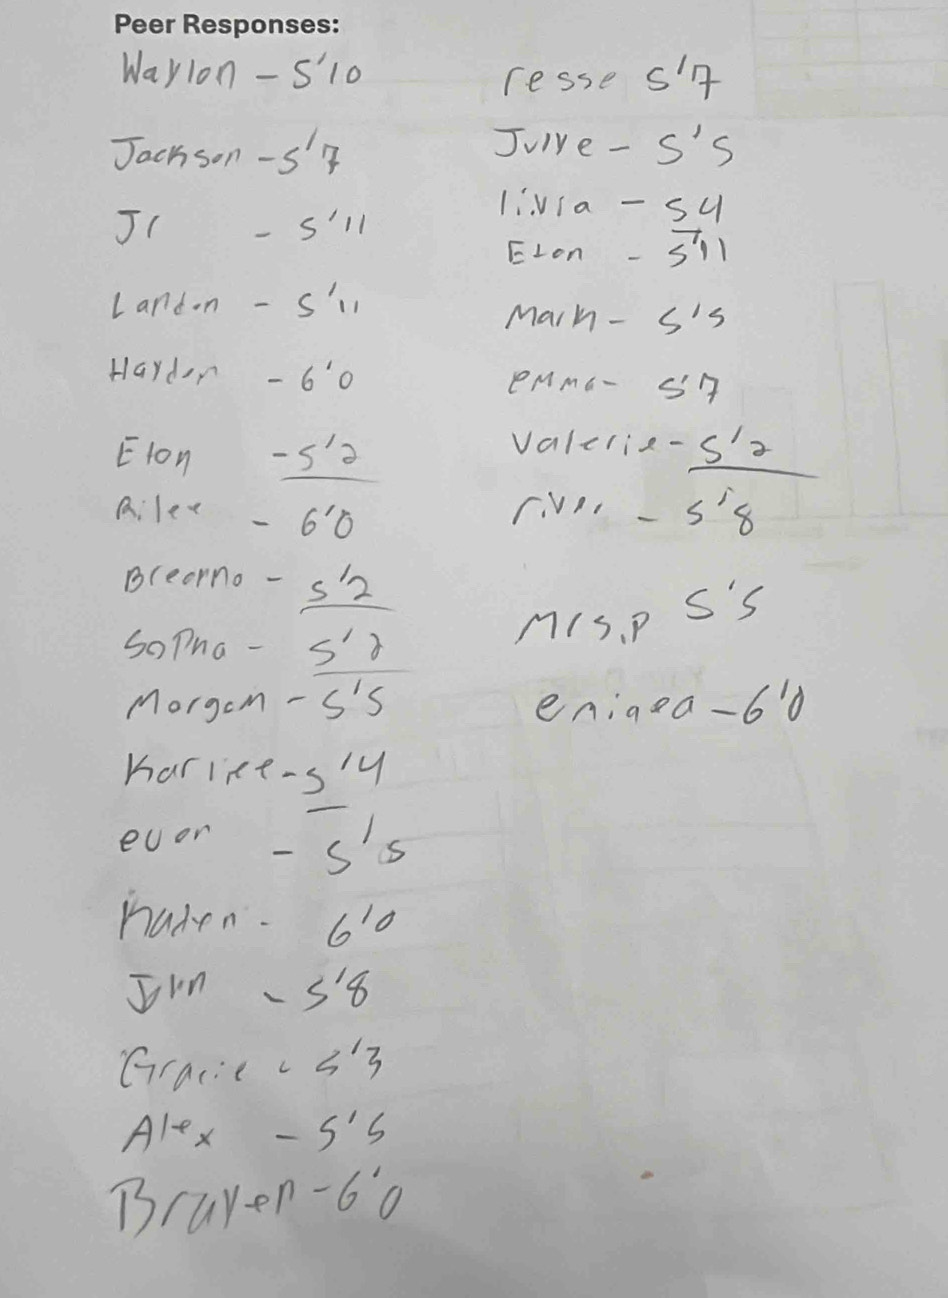 Peer Responses:
Waylon - 5'10
Jackson - 5'7
Jr - 5'11
Landon - 5'11
Haydon - 6'0
Eton - 5'2
Rilee - 6'0
Breanno - 5'2
Sopha - 5'2
Morgan - 5'5
Karlee - 5'4
evan - 5'5
Kaden - 6'0
- 5'8
Gracie - 5'3
Alex - 5'5
Brayen - 6'0
resse 5'7
- 5'5
livia - 54
Eton - 5'11
Mark - 5'5
emma - 5'7
Valerie - 5'2
river - 5'8
Mrs.P 5'5
- 6'0